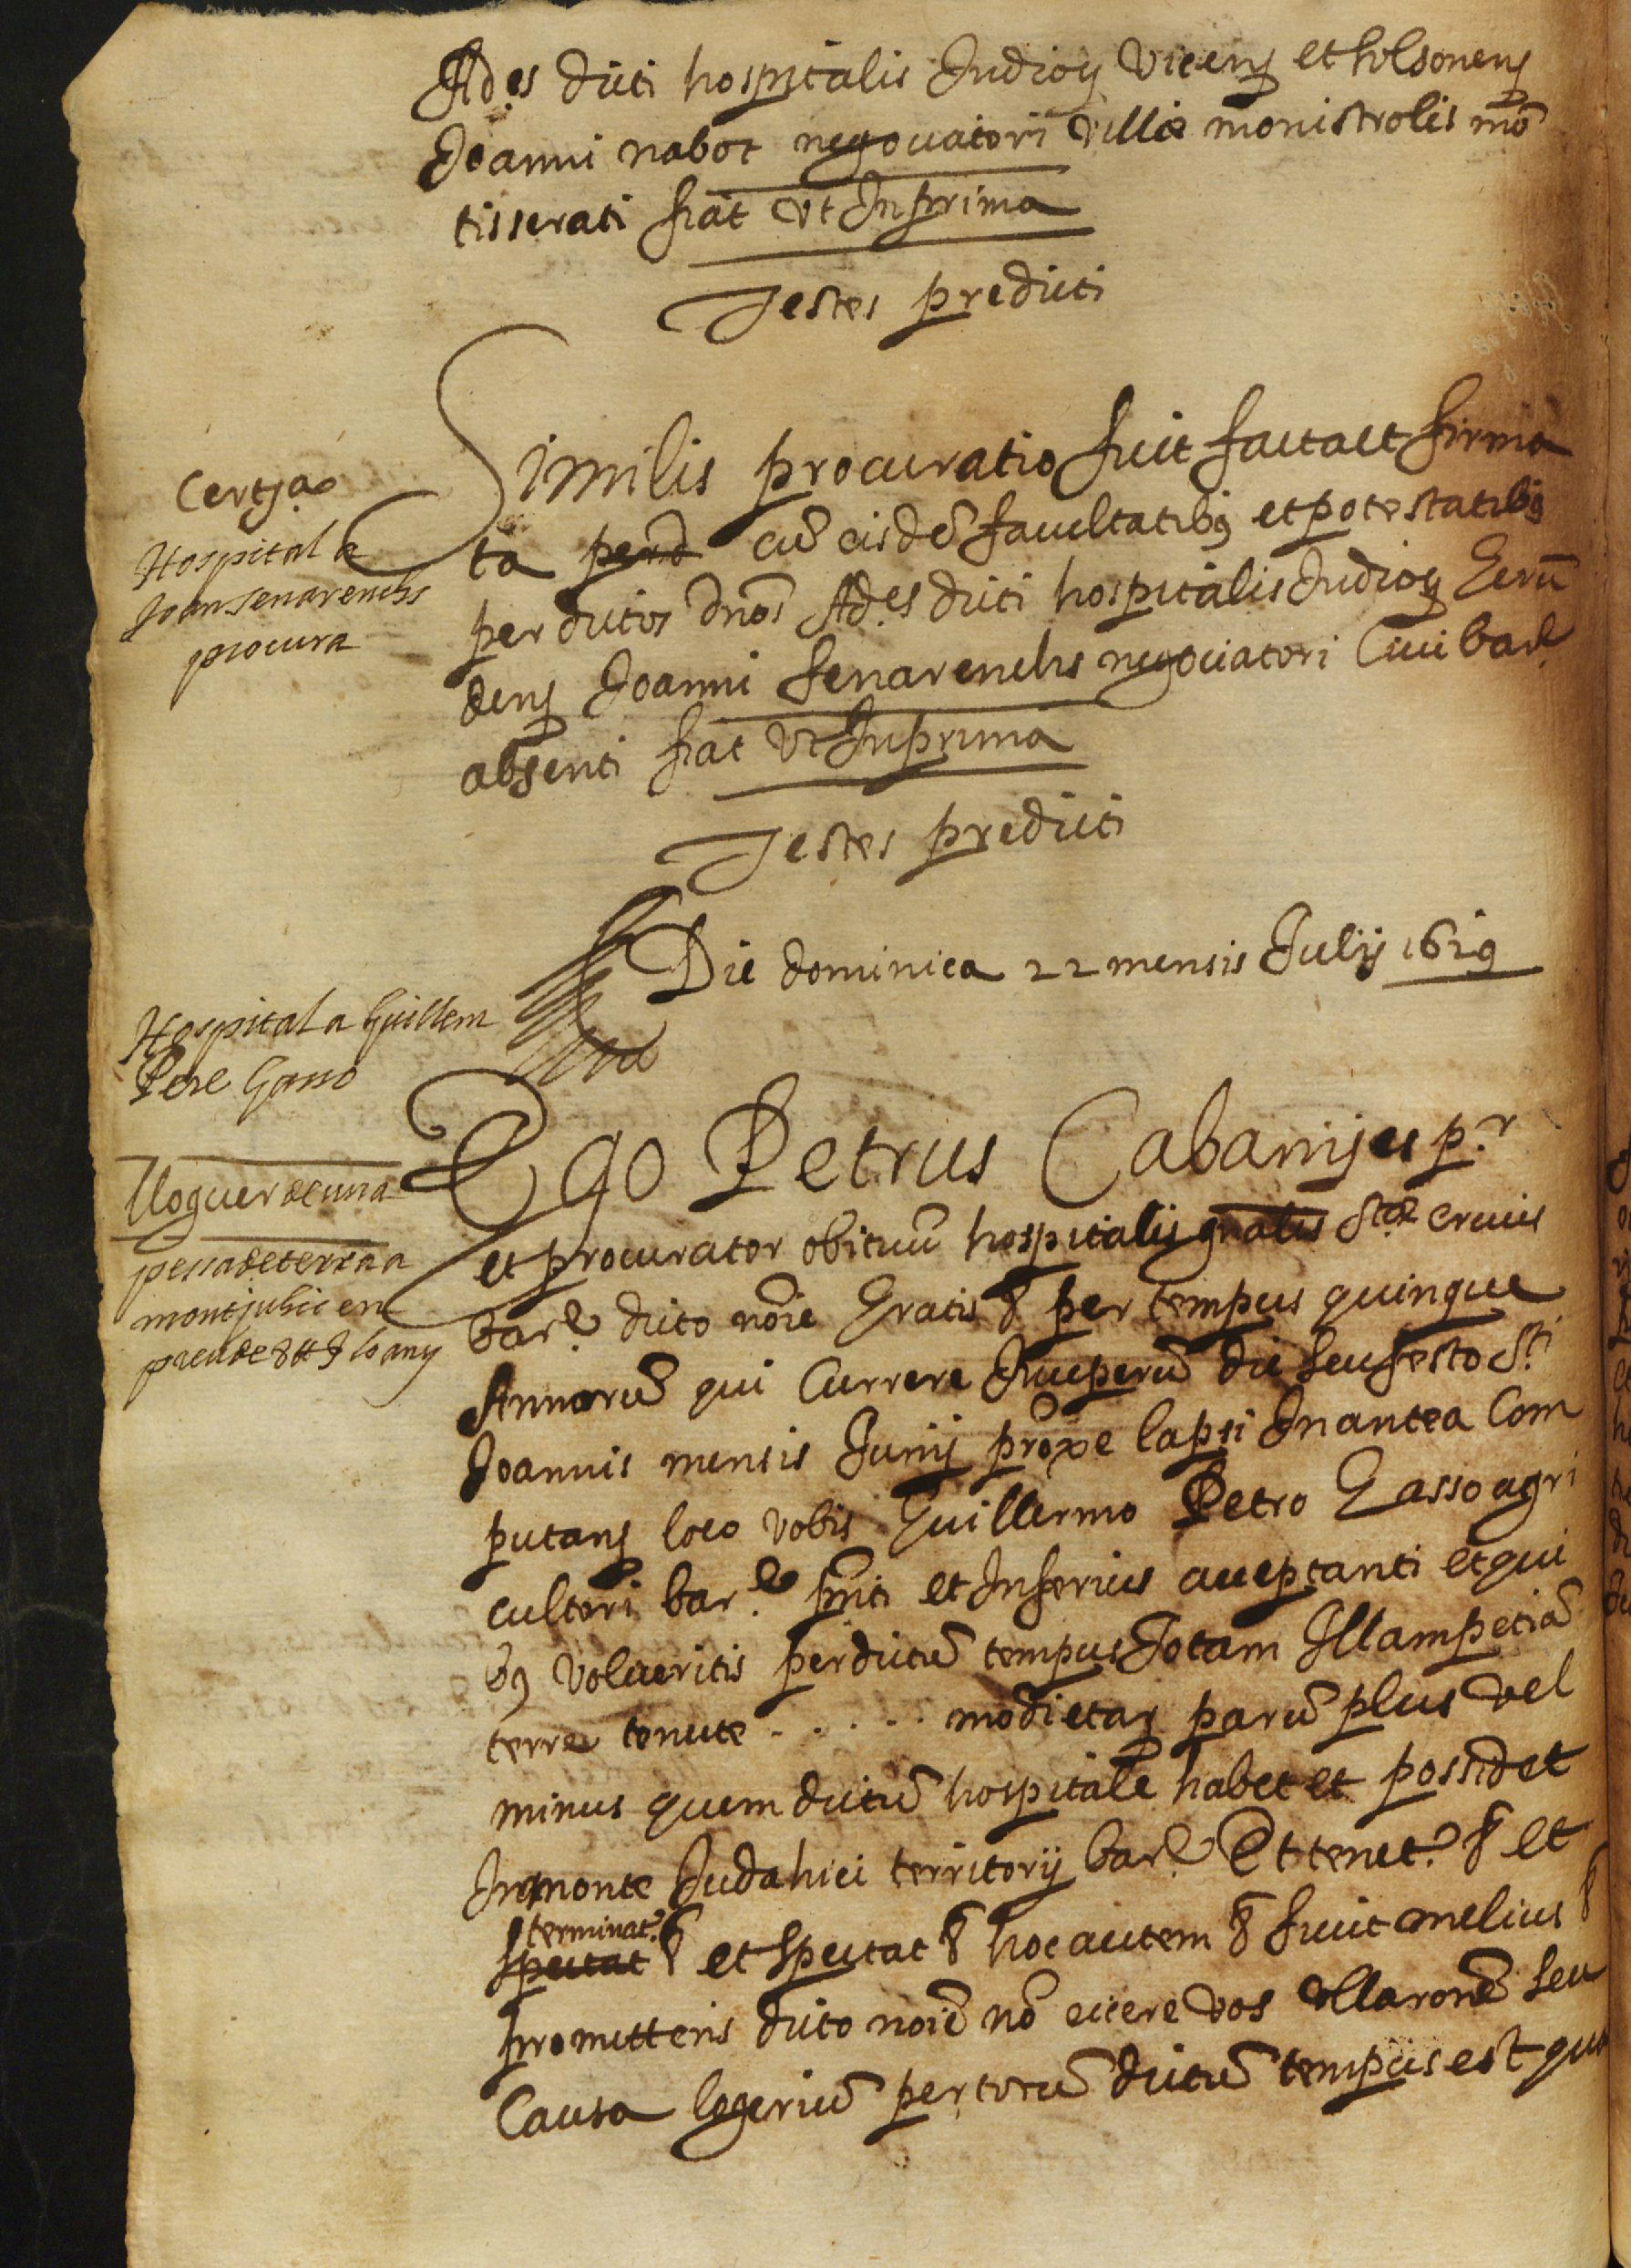 Ad.es dicti hospitalis Judicij Vicenȝ et Solsonenȝ
Joanni nabot negociatori Villæ monistrolis mō
tisserati fiat Vt In prima
Testes predicti
Certja
Hospital a
Joan senarenchs
procura
Similis procuratio fuit facta et firma
ta per d cū eisdē facultatibꝰ et potestatibꝰ
per dictos dnos Ad.es dicti hospitalis Judicij Gerū
denȝ Joanni senarenchs negociatori Civi barꝉ
absenti fiat Vt In prima
Testes predicti
Die dominica 22 mensis Julij 1629
Hospital a Guillem
Pere Gasso
Lloguer de una
pessa de terra a
montjuhic en
preu de 8 ꝉꝉ lo any
Ego Petrus Cabanyes p.r
et procurator obituū hospitalis gnalis Stæ crucis
barꝉ dicto noie Gratis &c per tempus quinque
Annorū qui Currere Inceperū die seu festo S.ti
Joannis mensis Junij proxe lapsi In antea Com
putanȝ loco vobis Guillermo Petro Gasso agri
cultori barꝉ pnti et Inferius acceptanti et qui
bꝰ Volueritis per dictū tempus Totam Illam petiā
terre tenute . . . . . modietaȝ parū plus vel
minus quem dictū hospitale habet et possidet
In monte Judahici territorij barꝉ Et tenet.r &c et
terminat.r
spectat &c et spectat &c hoc autem &c sicut melius &c
promittens dicto noiē nō eicere vos ulla ronē seu
Causa logeriū per totū dictū tempus est quo